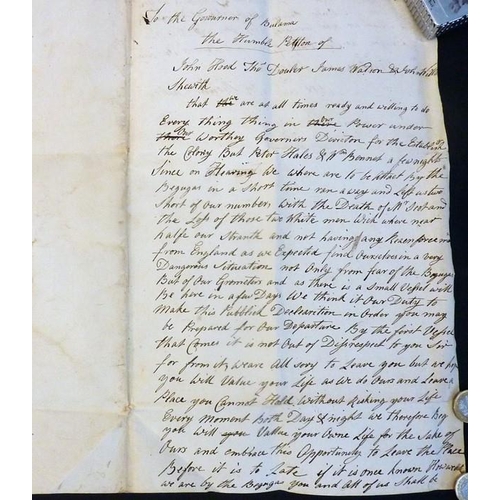 To the Governor of Bulama
the Humbe Pettion of
John Hood Tho Dowler James Watson & John
Shearth
that are as all times ready and willing to do
Every thing thing in Power under
Worthey Governers Diriton for the
the Colony But Peter Hales & Wm Bennet a few nights
Since on Hearing We where are to be Attact By the
Begugas in a Short time ran away and Left us two
Short of our numbers with the Death of Mr and
the Loss of those two white men Wich where near
halfe our Stranth and not having any Reinforce
from England as we Expected find Ourselves in a very
Dangerous Situation not Only from fear of the Begugas
But of our Grometers and as there is a Small Vessel will
Be here in a few Days We think it Our Duty to
Make this Pubbled Declearition in Order you may
be Prepared for Our Departure By the first Vessel
that Comes it is not Out of Disrespect to you Sir
for from it, we are All sory to Leave you but we hope
you Will Value your Life as we do Ours and Leave a
Place you Cannot Hold Without Risking your Life
Every Moment Both Day & night we Therefore Beg
you will you Vallue your Owne Life for the Sake of
Ours and embrace this Opportunity to Leave the Place
Before it is to Late if it is once known How
we are by the Begugas you and All of us Shall be